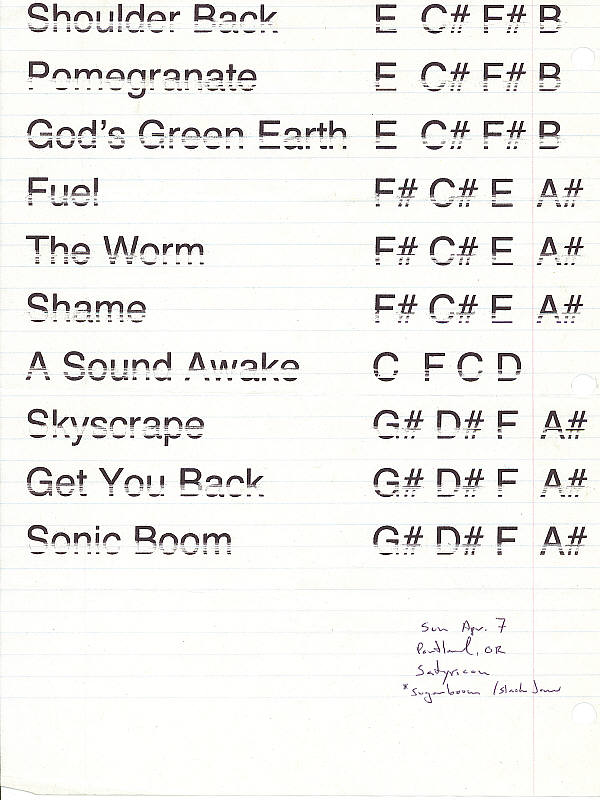 Shoulder Back E C# F# B
Pomegranate E C# F# B
God's Green Earth E C# F# B
Fuel F# C# E A#
The Worm F# C# E A#
Shame F# C# E A#
A Sound Awake C F C D
Skyscrape G# D# F A#
Get You Back G# D# F A#
Sonic Boom G# D# F A#
Sun Apr. 7
Portland, OR
Satyricon
*Sugarboom /slack Jaw